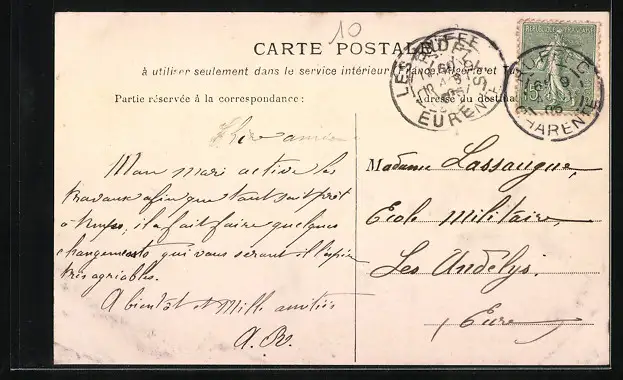 10
CARTE POSTALE
à utiliser seulement dans le service intérieur, France, Algérie et Tu
Partie réservée à la correspondance :
Adresse du destinat
LES ANDELYS
EURE
RUFFEC
CHARENTE
Chère amie
Mon mari active les
travaux afin que tout soit prêt
à temps, il a fait faire quelques
changements qui vous seront il l'espère
très agréables.
A bientôt et Mille amitiés
A. R.
Madame Lassaugue,
Ecole Militaire,
Les Andelys.
(Eure)